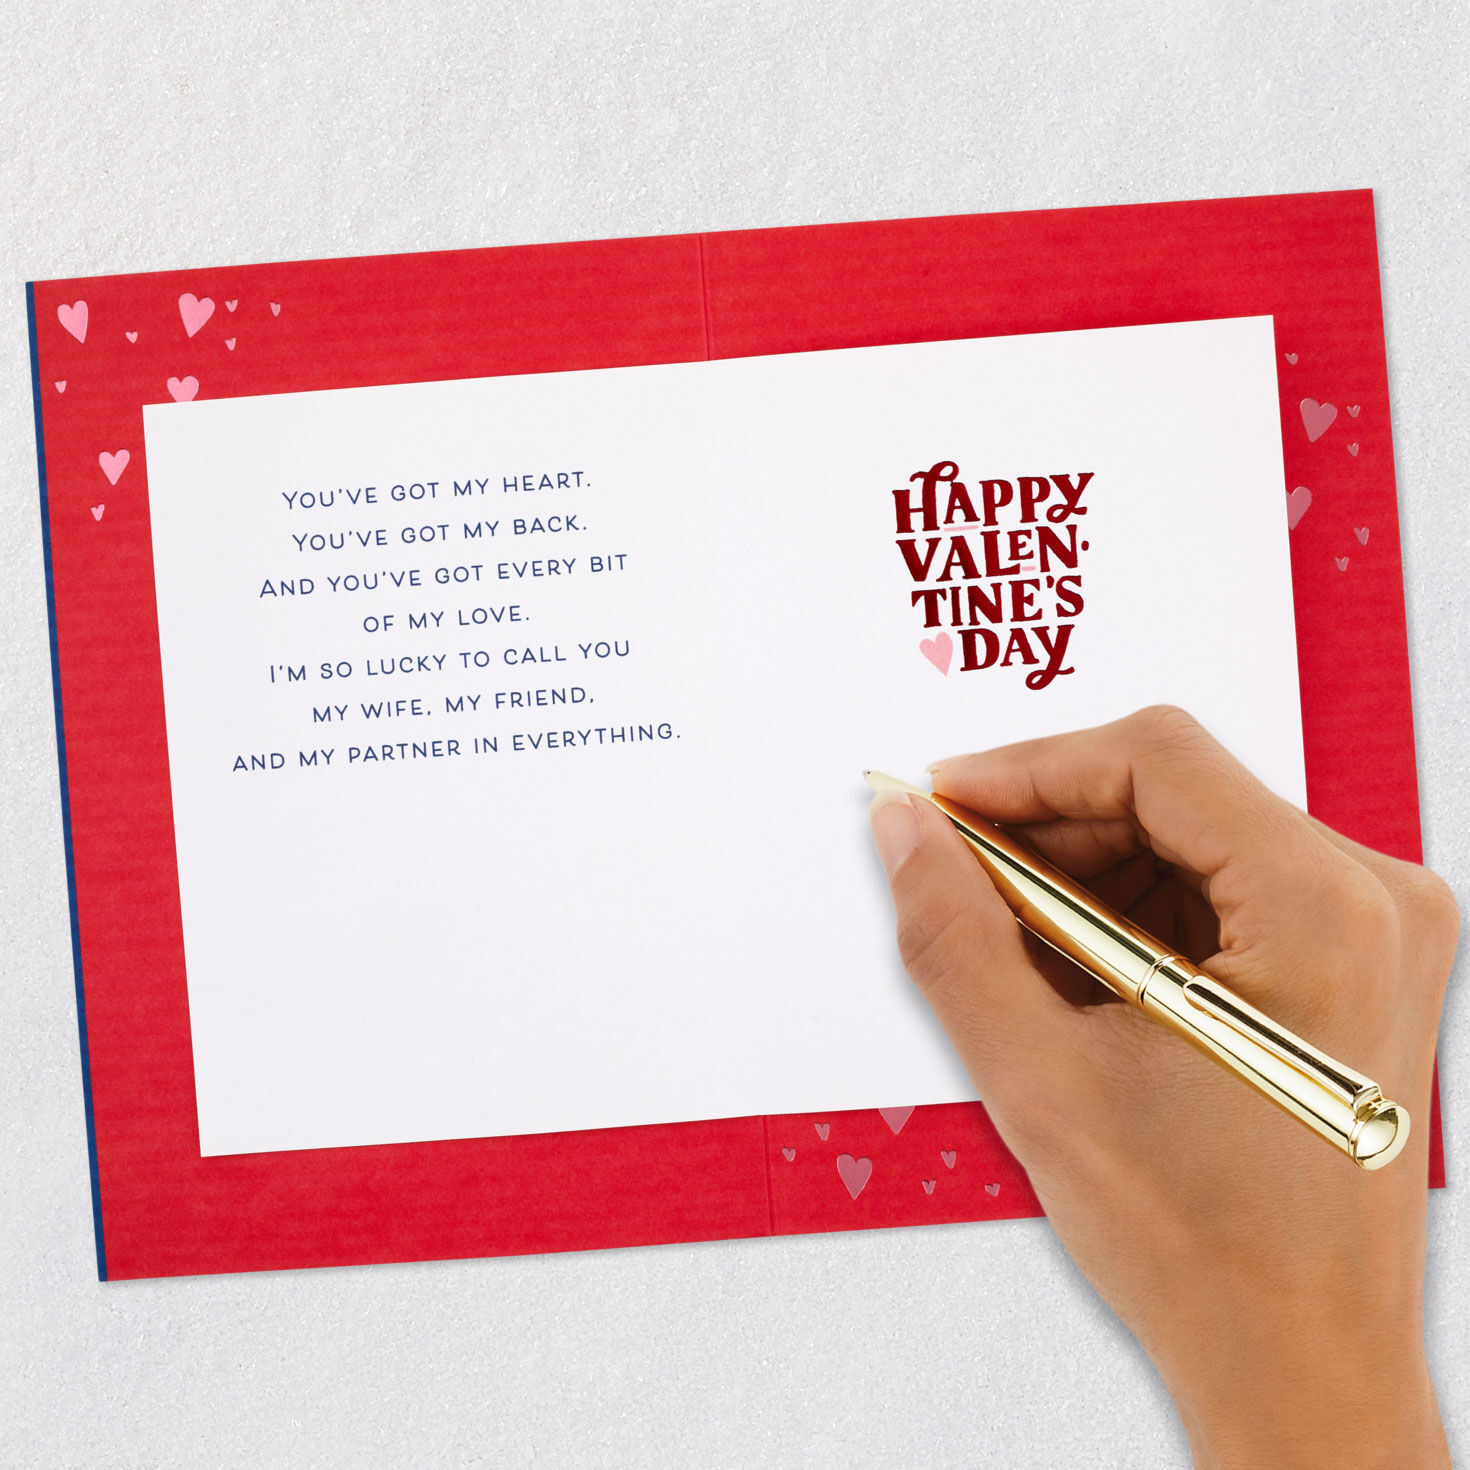 YOU'VE GOT MY HEART.
YOU'VE GOT MY BACK.
AND YOU'VE GOT EVERY BIT
OF MY LOVE.
I'M SO LUCKY TO CALL YOU
MY WIFE, MY FRIEND,
AND MY PARTNER IN EVERYTHING.
HAPPY
VALEN-
TINE'S
DAY